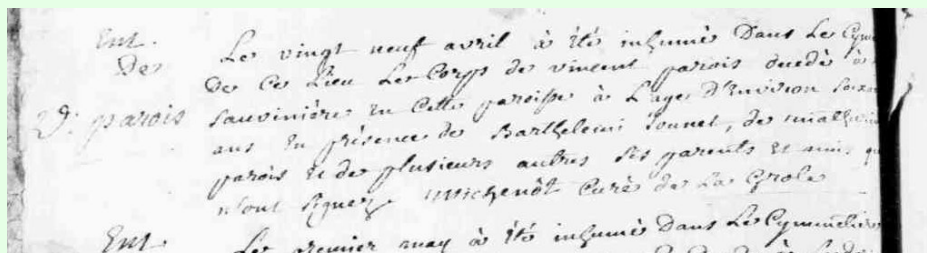 Ent.
De
V. parois
Le vingt neuf avril à été inhumé Dans Le Cym
De Ce Lieu Le Corps de vincent parois décédé à
Sauvinière En Cette paroisse à L'age D'Environ Soixan
ans En présence de Barthelemi Jounet, de
parois et de plusieurs autres Ses parents et amis qu
n'ont Signez Michenôt Curé de La Grole
Ent.
Le premier may à été inhumé Dans Le Cymmetiere